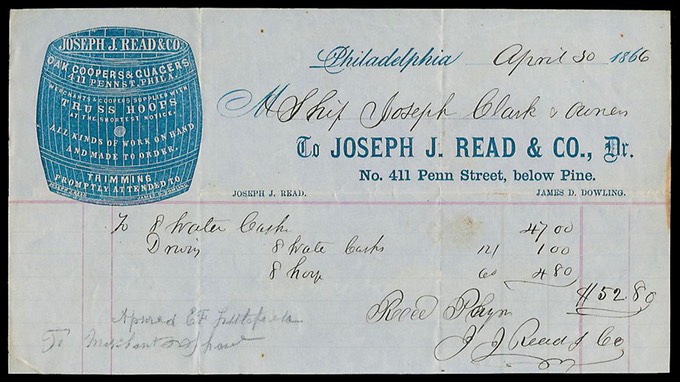 JOSEPH J. READ & CO.
OAK COOPERS & GUAGERS
411 PENN ST. PHILA.
MERCHANTS & COOPERS SUPPLIED WITH
TRUSS HOOPS
AT THE SHORTEST NOTICE.
ALL KINDS OF WORK ON HAND
AND MADE TO ORDER.
TRIMMING
PROMPTLY ATTENDED TO.
Philadelphia April 30 1866
M Ship Joseph Clark & owners
To JOSEPH J. READ & CO., Dr.
No. 411 Penn Street, below Pine.
JOSEPH J. READ. JAMES D. DOWLING.
To 8 Water Casks 47 00
8 Wate Casks 12½ 1 00
8 60 4 80
$52.80
Recd Paym
J J Read & Co
To Merchant